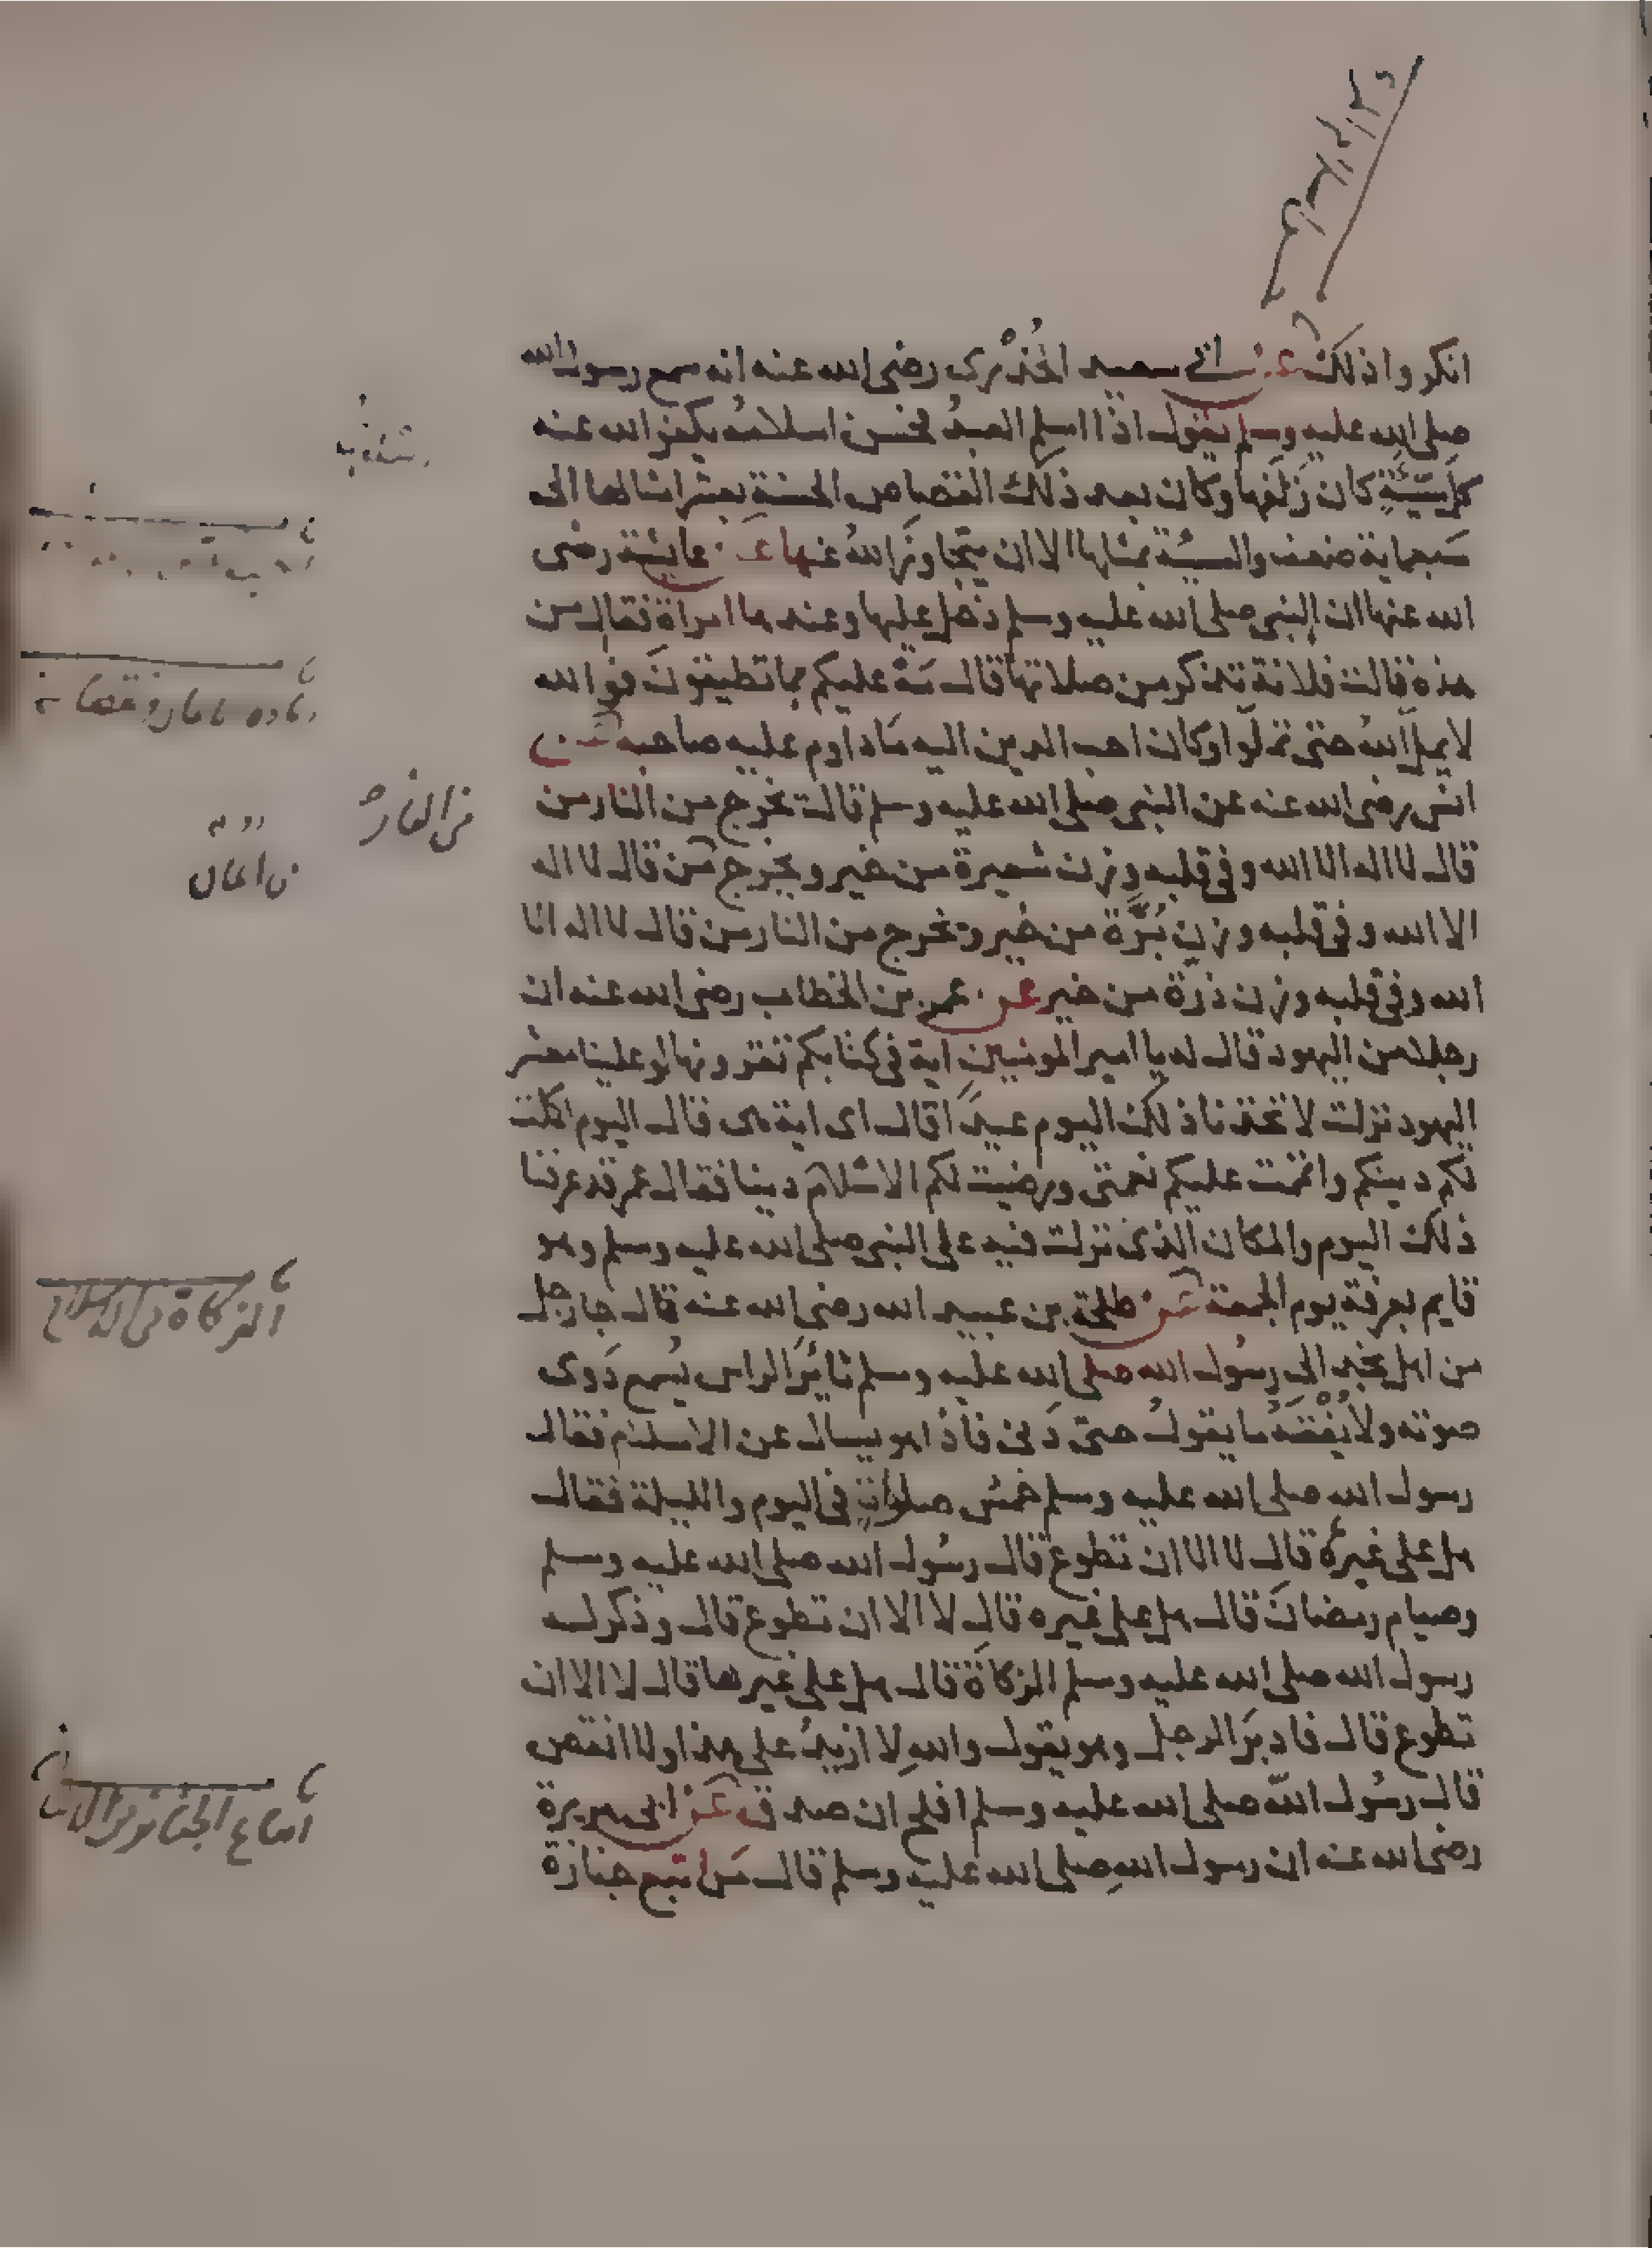 انكروا ذلك عن ابي سعيد الخُدْري رضى الله عنه انه سمع رسول الله
صلى الله عليه وسلم يقول اذا اسلم العبدُ فحسن اسلامُه يكفر الله عنه
كل سَيّئةٍ كان زلفها وكان بعد ذلك القصاص الحسنة بعشر امثالها الى
سَبعماية ضعف والسيئة بمثلها الا ان يتجاوزَ اللهُ عنها عن عايشة رضى
الله عنها ان النبي صلى الله عليه وسلم دخل عليها وعندها امراة فقال من
هذه قالت فلانة تذكر من صلاتها قال مَهْ عليكم بما تطيقونَ فوالله
لا يملّ اللهُ حتى تملّوا وكان احب الدين اليه مَا داوم عليه صاحبه عن
انس رضى الله عنه عن النبي صلى الله عليه وسلم قال يخرج من النار من
قال لا اله الا الله وفي قلبه وزن شعيرة من خير ويخرج من قال لا اله
الا الله وفي قلبه وزن بُرَّة من خير ويخرج من النار من قال لا اله الا
الله وفي قلبه وزن ذرة من خير عن عمر بن الخطاب رضى الله عنه ان
رجلا من اليهود قال له يا امير المومنين اية في كتابكم تقرونها لو علينا معشر
اليهود نزلت لاتخذنا ذلك اليوم عيدًا قال اى اية هى قال اليوم اكملت
لكم دينكم واتممت عليكم نعمتى ورضيت لكم الاسلام دينا فقال عمر قد عرفنا
ذلك اليوم والمكان الذى نزلت فيه على النبي صلى الله عليه وسلم وهو
قايم بعرفة يوم الجمعة عن طلحة بن عبيد الله رضى الله عنه قال جا رجل
من اهل نجد الى رسُول الله صلى الله عليه وسلم ثايرَ الراس يُسمع دَوى
صوته ولا يُفْقَهُ ما يقولُ حتى دَنى فاذا هو يسال عن الاسلام فقال
رسول الله صلى الله عليه وسلم خمسُ صلواتٍ في اليوم والليلة فقال
هل على غيرهُ قال لا الا ان تطوع قال رسُول الله صلى الله عليه وسلم
وصيام رمضانَ قال هل على غيره قال لا الا ان تطوع قال وذكر له
رسول الله صلى الله عليه وسلم الزكاةَ قال هل على غيرها قال لا الا ان
تطوع قال فادبرَ الرجل وهو يقول واللهِ لا ازيدُ على هذا ولا انقص
قال رسُول اللّه صلى الله عليه وسلم افلح ان صدق عن ابى هريرة
رضى الله عنه ان رسول الله صلى الله عليه وسلم قال مَن اتبع جنازة